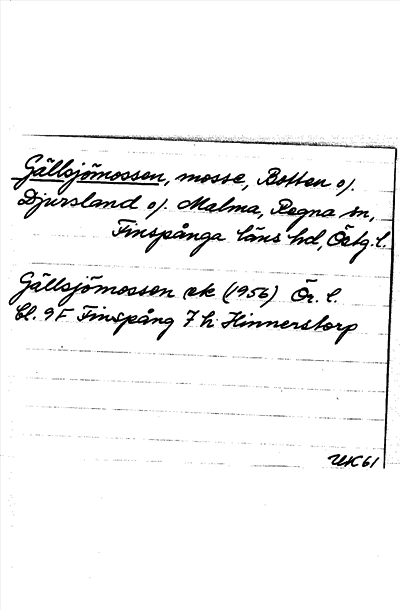 Gällsjömossen, mosse, Botten o/.
Djursland o/. Malma, Regna sn,
Finspånga läns hd, Östg. l.
Gällsjömossen ek (1956) Ör. l.
bl. 9F Finspång 7 h Hinnerstorp
UK61